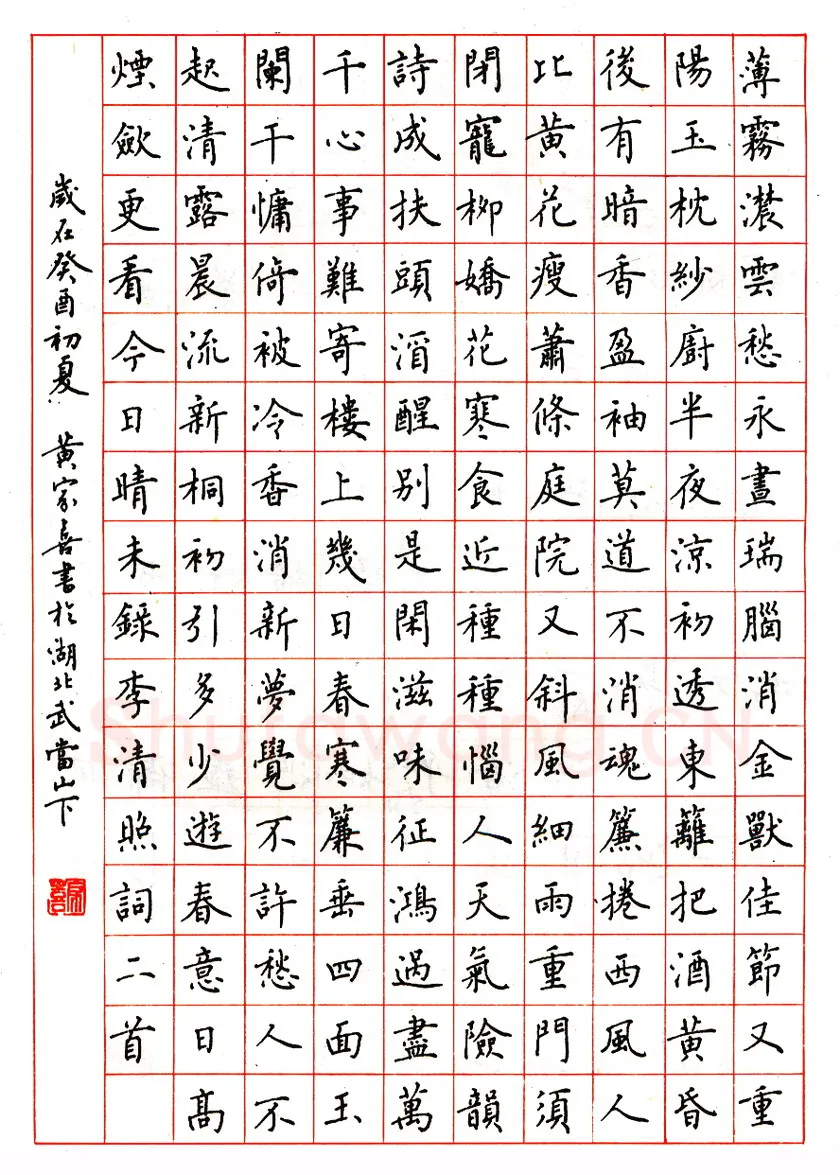 薄霧濃雲愁永晝瑞腦消金獸佳節又重
陽玉枕紗廚半夜涼初透東籬把酒黃昏
後有暗香盈袖莫道不消魂簾捲西風人
比黃花瘦蕭條庭院又斜風細雨重門須
閉寵柳嬌花寒食近種種惱人天氣險韻
詩成扶頭酒醒別是閑滋味征鴻過盡萬
千心事難寄樓上幾日春寒簾垂四面玉
闌干慵倚被冷香消新夢覺不許愁人不
起清露晨流新桐初引多少遊春意日髙
煙斂更看今日晴未錄李清照詞二首
歲在癸酉初夏 黃家喜書於湖北武當山下
家喜
Shufawang.CN